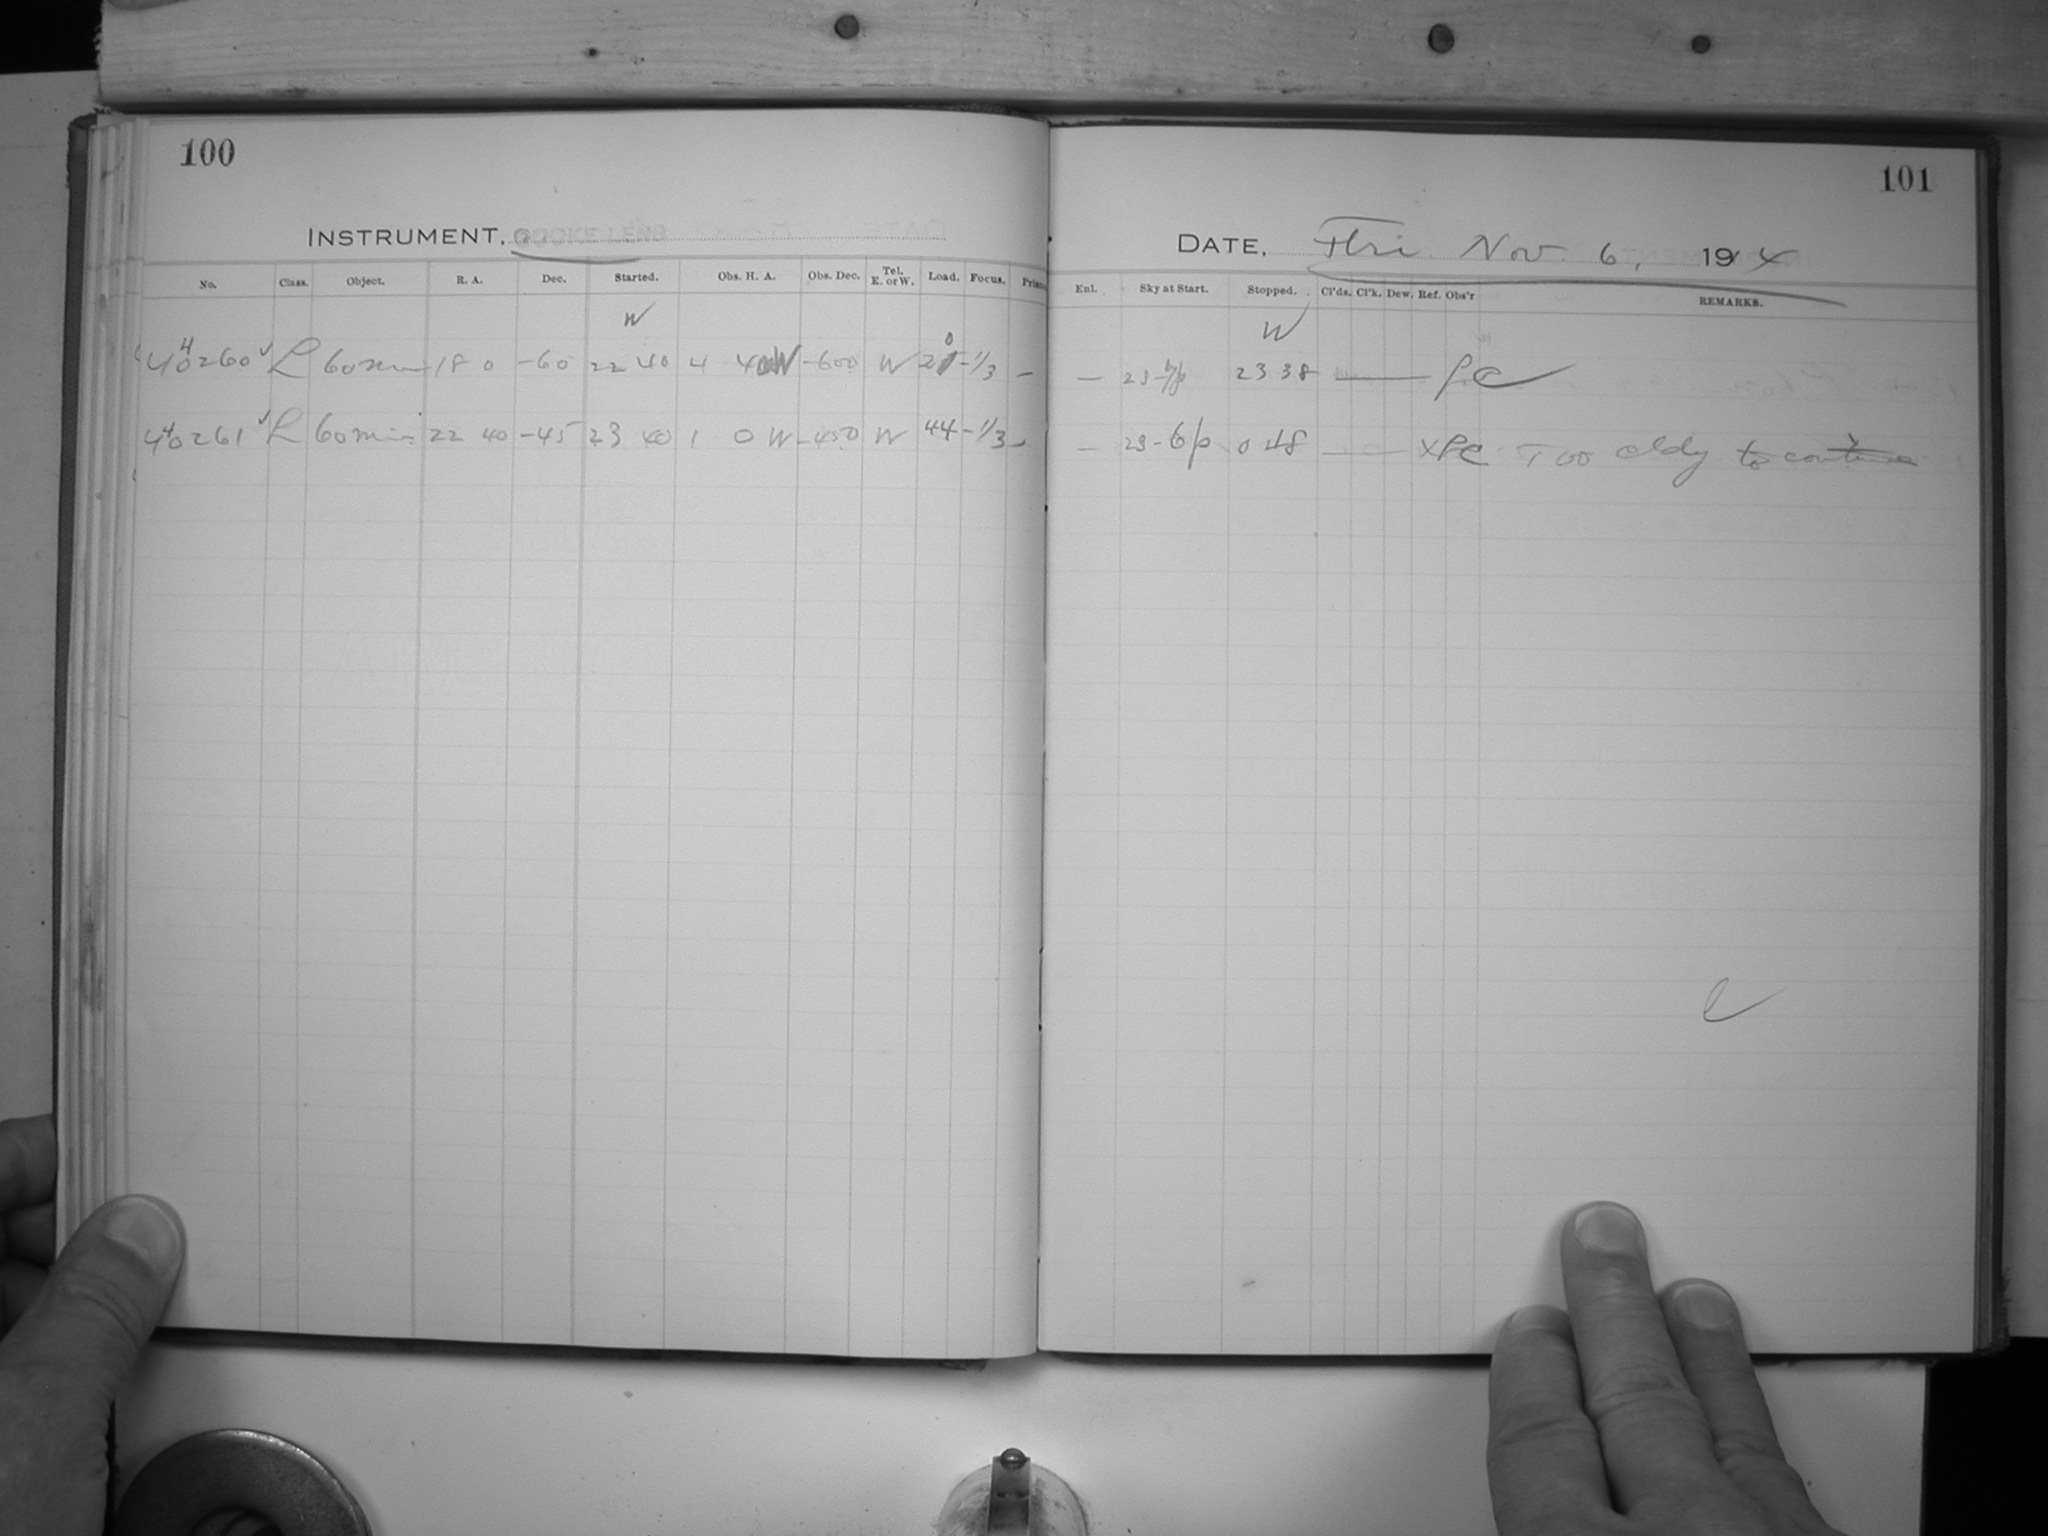 100
INSTRUMENT, COOKE LENS
No. Class. Object. R. A. Dec. Started. Obs. H. A. Obs. Dec. Tel. E. or W. Load. Focus.
W
40260 L 60min 18 0 -60 22 40 4 40 W -600 W 20 -1/3 —
40261 L 60min 22 40 -45 23 40 1 0 W -450 W 44 -1/3 —
101
DATE, Fri. Nov. 6, 194
Enl. Sky at Start. Stopped. Cl'ds. Cl'k. Dew. Ref. Obs'r REMARKS.
W
— 23 38 — PC
— 0 48 — PC Too cldy to continue